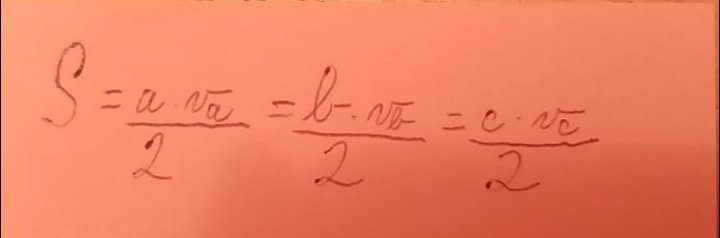 S = a·vₐ/2 = b·v_b/2 = c·v_c/2